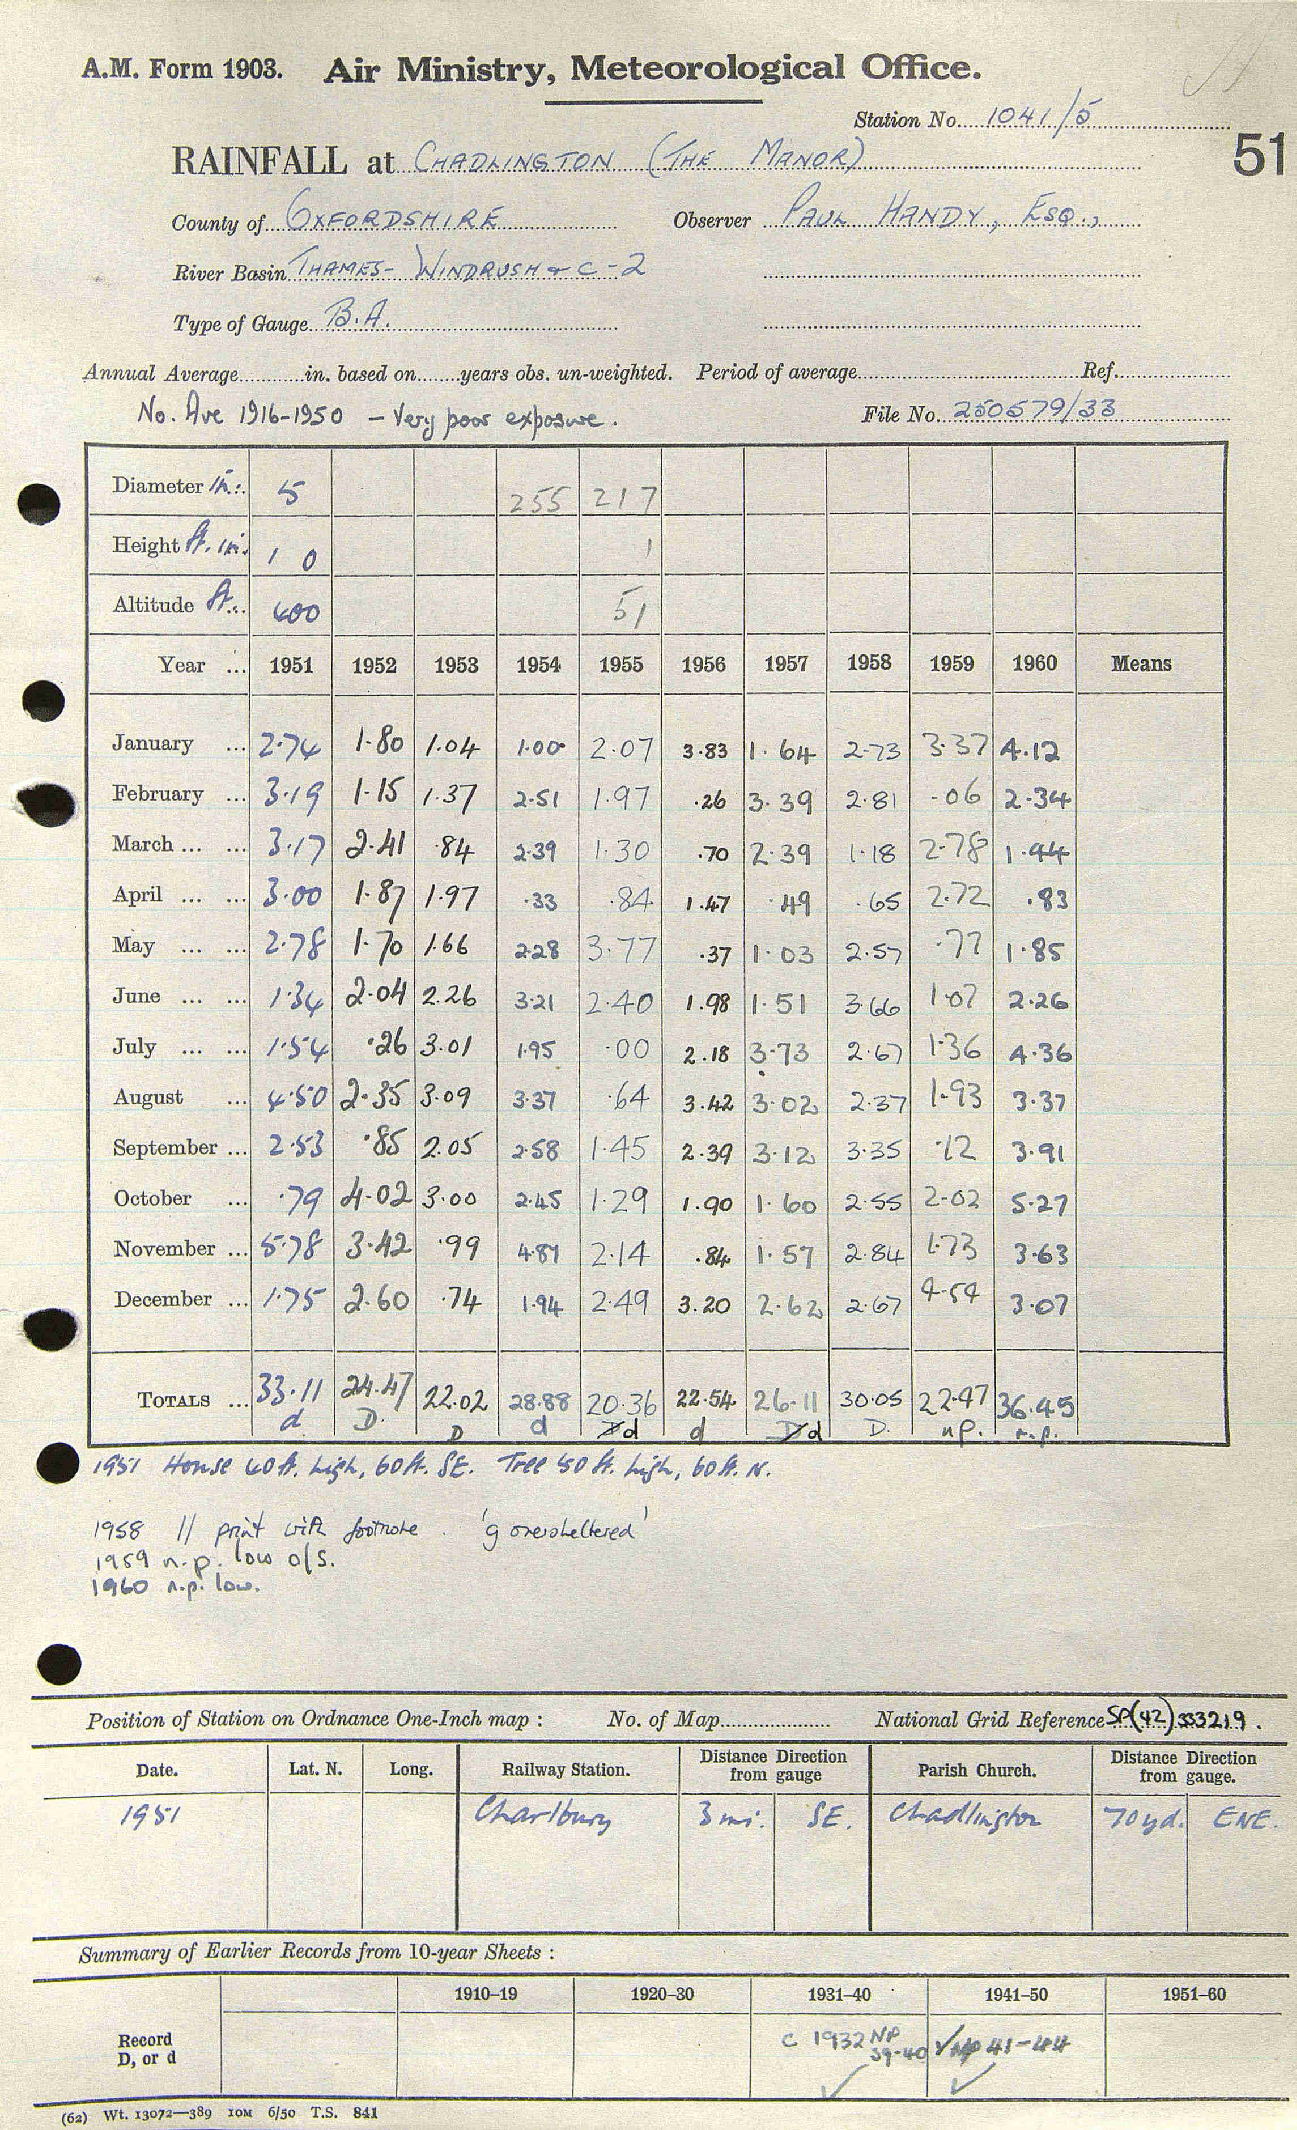 A.M. Form 1903. Air Ministry, Meteorological Office.
Station No. 1041/5
51
RAINFALL at CHADLINGTON (THE MANOR)
County of OXFORDSHIRE Observer PAUL HANDY, ESQ.,
River Basin THAMES- WINDRUSH & C-2
Type of Gauge B.A.
Annual Average in. based on years obs. un-weighted. Period of average Ref.
No. Ave 1916-1950 - Very poor exposure. File No. 250579/33
Diameter in. 5 255 217
Height ft. in. 1 0 1
Altitude ft. 400 51
Year ... 1951 1952 1953 1954 1955 1956 1957 1958 1959 1960 Means
January ... 2.74 1.80 1.04 1.00 2.07 3.83 1.64 2.73 3.37 4.12
February ... 3.19 1.15 1.37 2.51 1.97 .26 3.39 2.81 .06 2.34
March ... ... 3.17 2.41 .84 2.39 1.30 .70 2.39 1.18 2.78 1.44
April ... ... 3.00 1.87 1.97 .33 .84 1.47 .49 .65 2.72 .83
May ... ... 2.78 1.70 1.66 2.28 3.77 .37 1.03 2.57 .77 1.85
June ... ... 1.34 2.04 2.26 3.21 2.40 1.98 1.51 3.66 1.07 2.26
July ... ... 1.54 .26 3.01 1.95 .00 2.18 3.73 2.67 1.36 4.36
August ... 4.50 2.35 3.09 3.37 .64 3.42 3.02 2.37 1.93 3.37
September ... 2.53 .85 2.05 2.58 1.45 2.39 3.12 3.35 .12 3.91
October ... .79 4.02 3.00 2.45 1.29 1.90 1.60 2.55 2.02 5.27
November ... 5.78 3.42 .99 4.87 2.14 .84 1.57 2.84 1.73 3.63
December ... 1.75 2.60 .74 1.94 2.49 3.20 2.62 2.67 4.54 3.07
TOTALS ... 33.11 24.47 22.02 28.88 20.36 22.54 26.11 30.05 22.47 36.45
d D. D d d d d D. n.p. n.p.
1951 House 40ft. high, 60ft. SE. Tree 50ft. high, 60ft. N.
1958 // print with footnote. 'g oversheltered'
1959 n.p. low o/s.
1960 n.p. low.
Position of Station on Ordnance One-Inch map : No. of Map National Grid Reference SP(42)333219.
Date. Lat. N. Long. Railway Station. Distance from gauge Direction Parish Church. Distance from gauge. Direction
1951 Charlbury 3mi. SE. Chadlington 70yd. ENE.
Summary of Earlier Records from 10-year Sheets :
1910-19 1920-30 1931-40 1941-50 1951-60
Record D, or d C 1932 NP 39-40 ✓ NP 41-44
✓ ✓
(62) Wt. 13072—389 10M 6/50 T.S. 841